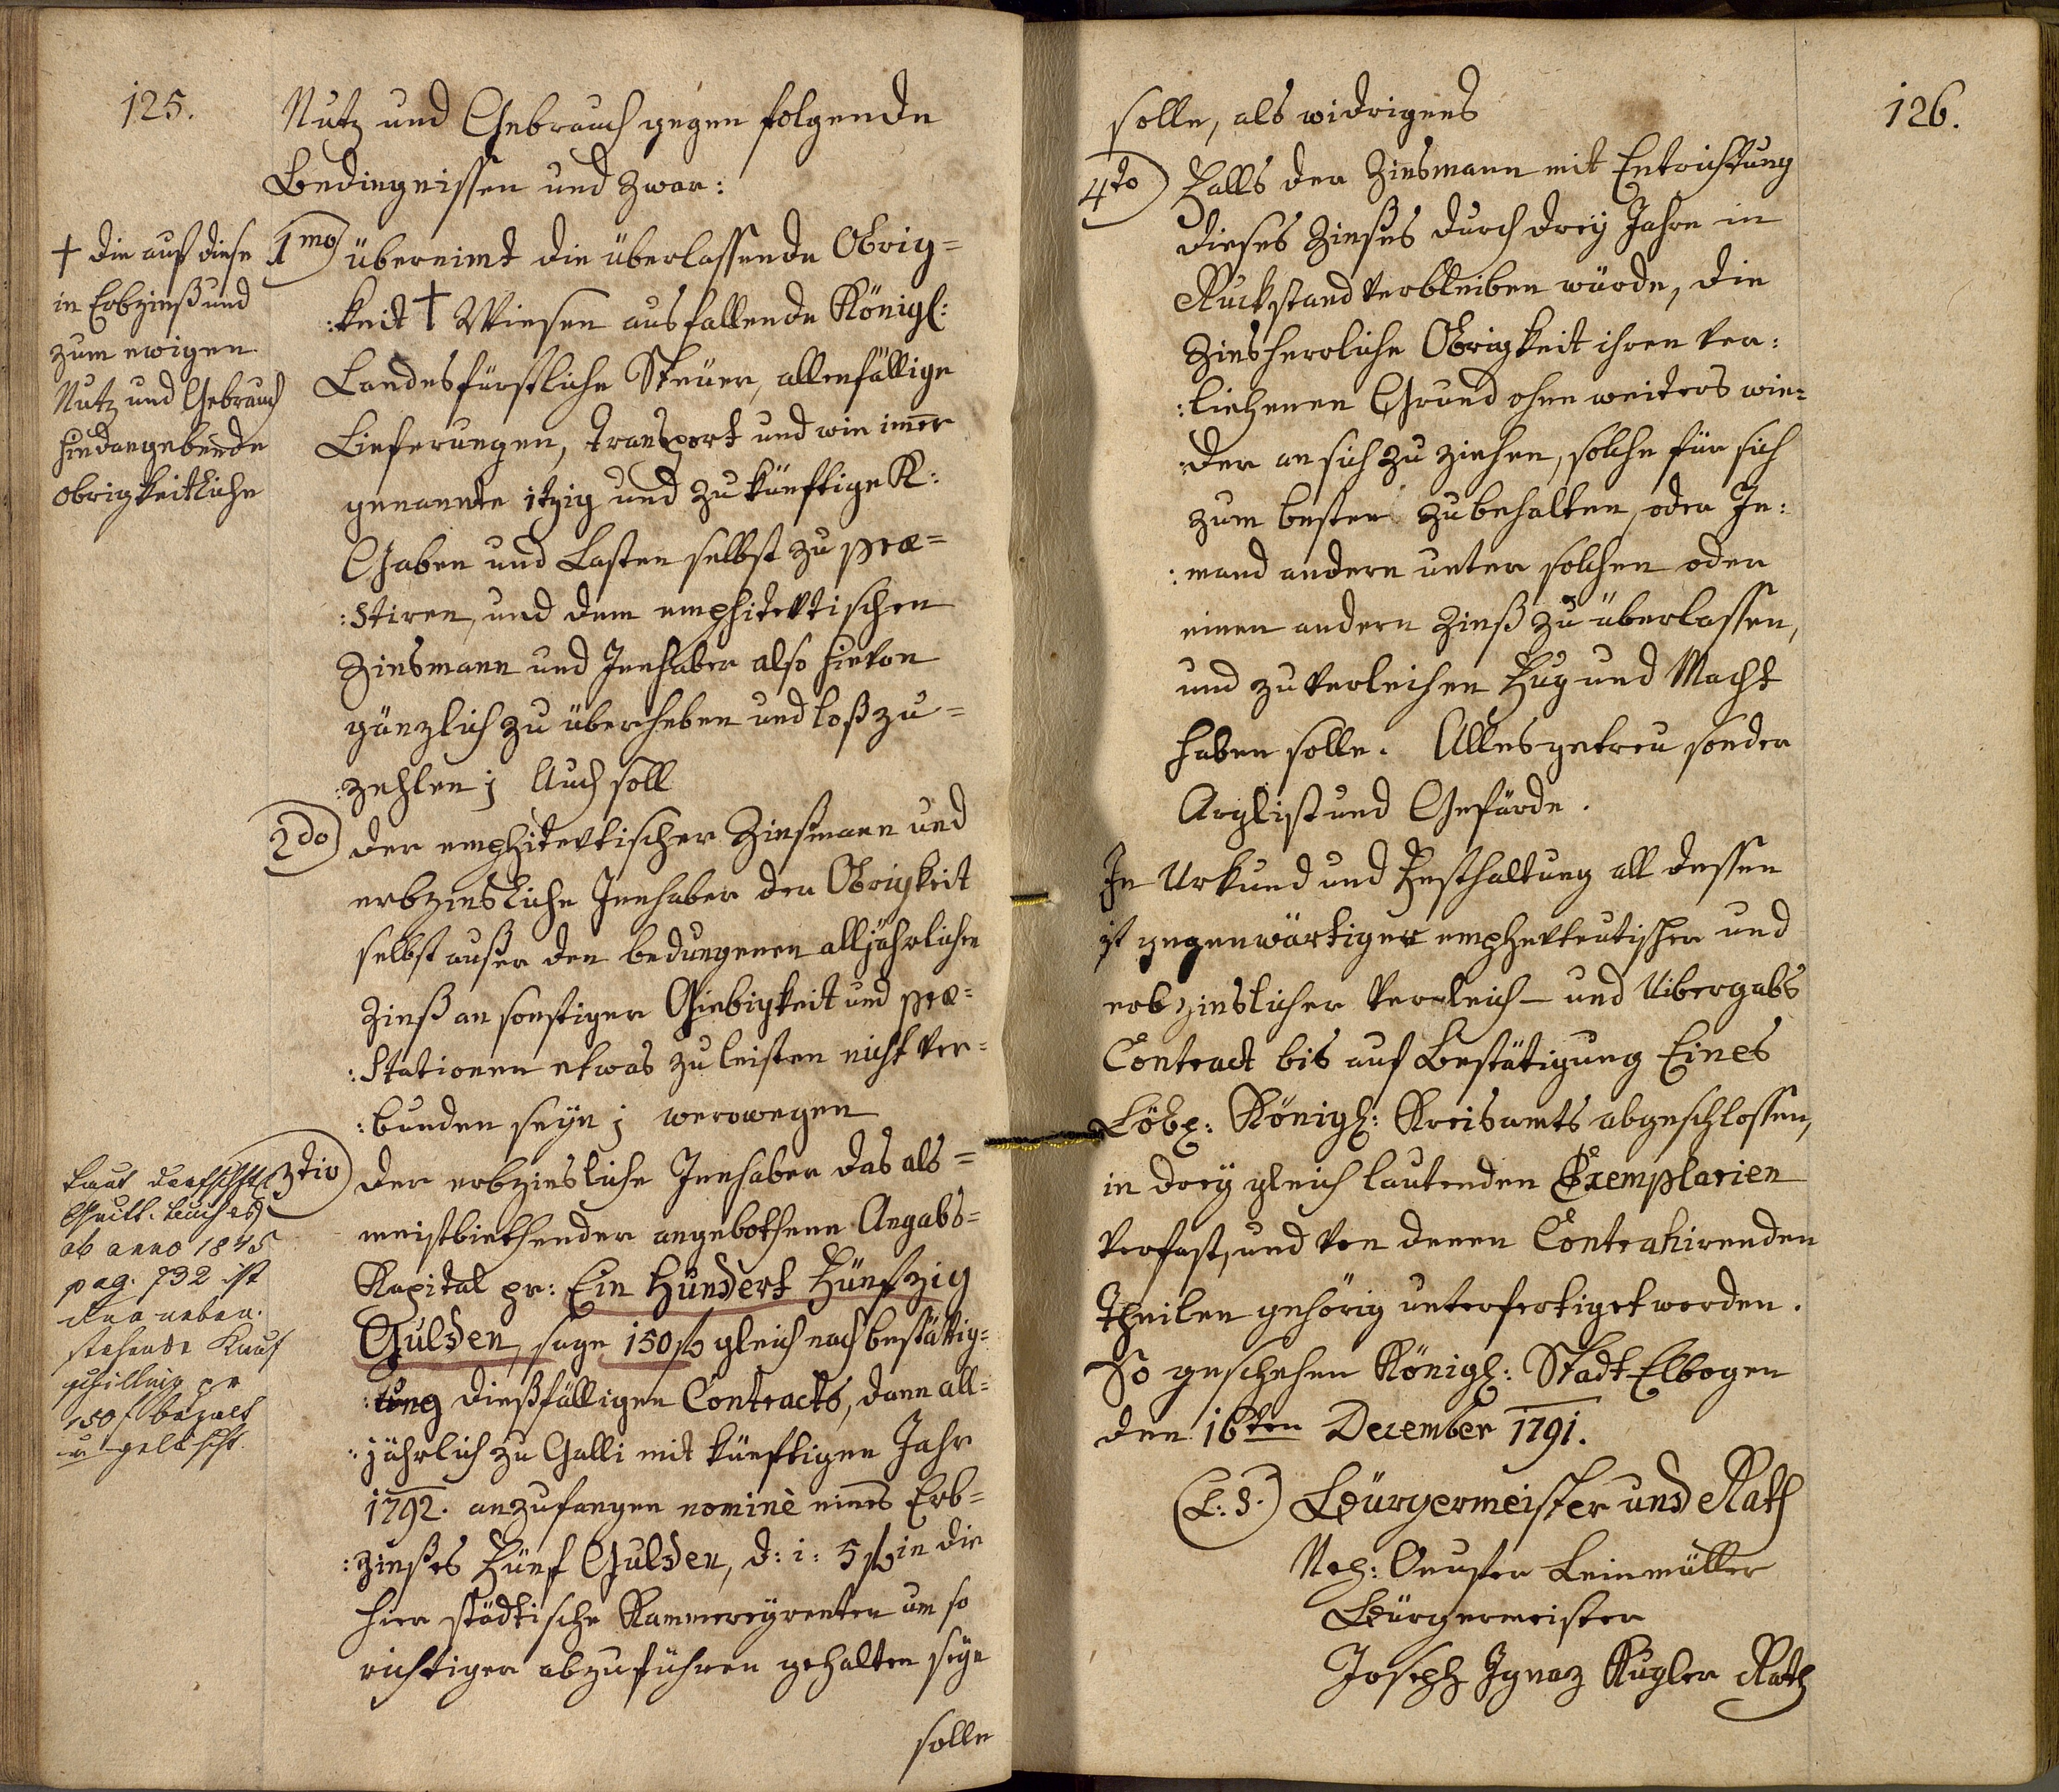 125.
Nutz und Gebrauch gegen folgende
Bedingnissen und zwar:
1mo übernimt die überlassende Obrig=
:keit † Wiesen ausfallende Königl:
Landesfürstliche Steuer, allenfällige
Lieferungen, transport und wie im̅er
genannte itzig und zukünftige K:
Gaben und Lasten selbst zu prae=
:stiren, und dem emphitevtischen
Zinsmann und Innhaber also hievon
gänzlich zu überheben und loßzu=
:zehlen; Auch soll
2do der emphitevtischer Zinßmann und
erbzinsliche Innhaber der Obrigkeit
selbst außer den bedungenen alljährlichen
Zinß an sonstiger Giebigkeit und prae=
:stationen etwas zu leisten nicht ver=
:bunden seyn; werowegen
3tio der erbzinsliche Innhaber das als=
meistbiethender angebothene Angabs=
Kapital pr: Ein Hundert Fünfzig
Gulden, sage 150 f gleich nach bestättig=
:ung dießfälligen Contracts, dann all=
:jährlich zu Galli mit künftigen Jahr
1792. anzufangen nominè eines Erb=
:zinßes Fünf Gulden, d: i: 5 f in die
hier städtische Kammereyrenten um so
richtiger abzuführen gehalten seyn
solle
† die auf diese
in Erbzinß und
zum ewigen
Nutz und Gebrauch
hindangebende
obrigkeitliche
Laut
ab anno 1845
pag. 732 ist
der neben
stehende Kauf
schilling pr
150 f bezalt
u gelöscht.
126.
solle, als widrigens
4to Falls der Zinsmann mit Entrichtung
dieses Zinßes durch drey Jahre in
Ruckstand verbleiben würde, die
Zinsherrliche Obrigkeit ihren ver:
:liehenen Grund ohne weiters wie=
:der an sich zu ziehen, solche für sich
zum besten zu behalten, oder Je:
:mand andern unter solchen oder
einen andern Zinß zu überlassen,
und zu verleihen Fug und Macht
haben solle. Alles getreu sonder
Arglist und Gefärde.
In Urkund und Festhaltung all dessen
ist gegenwärtiger emphevteutischer und
erbzinslicher Vergleich– und Uibergabs
Contract bis auf Bestätigung Eines
Löbl: Königl: Kreisamts abgeschlossen,
in drey gleich lautenden Exemplarien
verfast, und von denen Contrahirenden
Theilen gehörig unterfertiget worden.
So geschehen Königl: Stadt Elbogen
den 16ten December 1791.
(L: S.) Bürgermeister und Rath
Leinmüller
Bürgermeister
Joseph Ignaz Kugler Rath